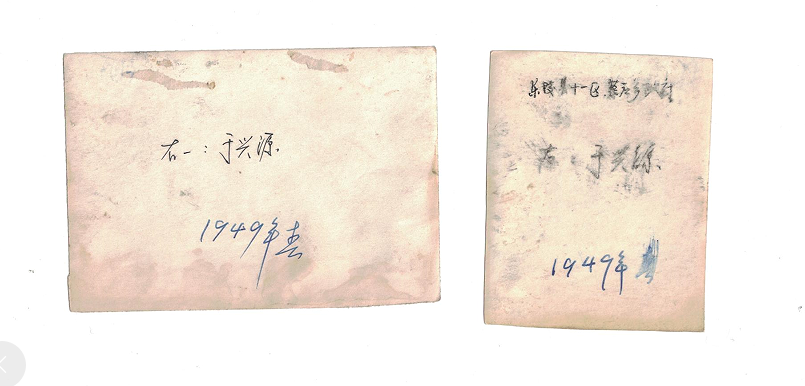 右一：于兴源
1949年春
乐陵县十一区
右：于兴源
1949年